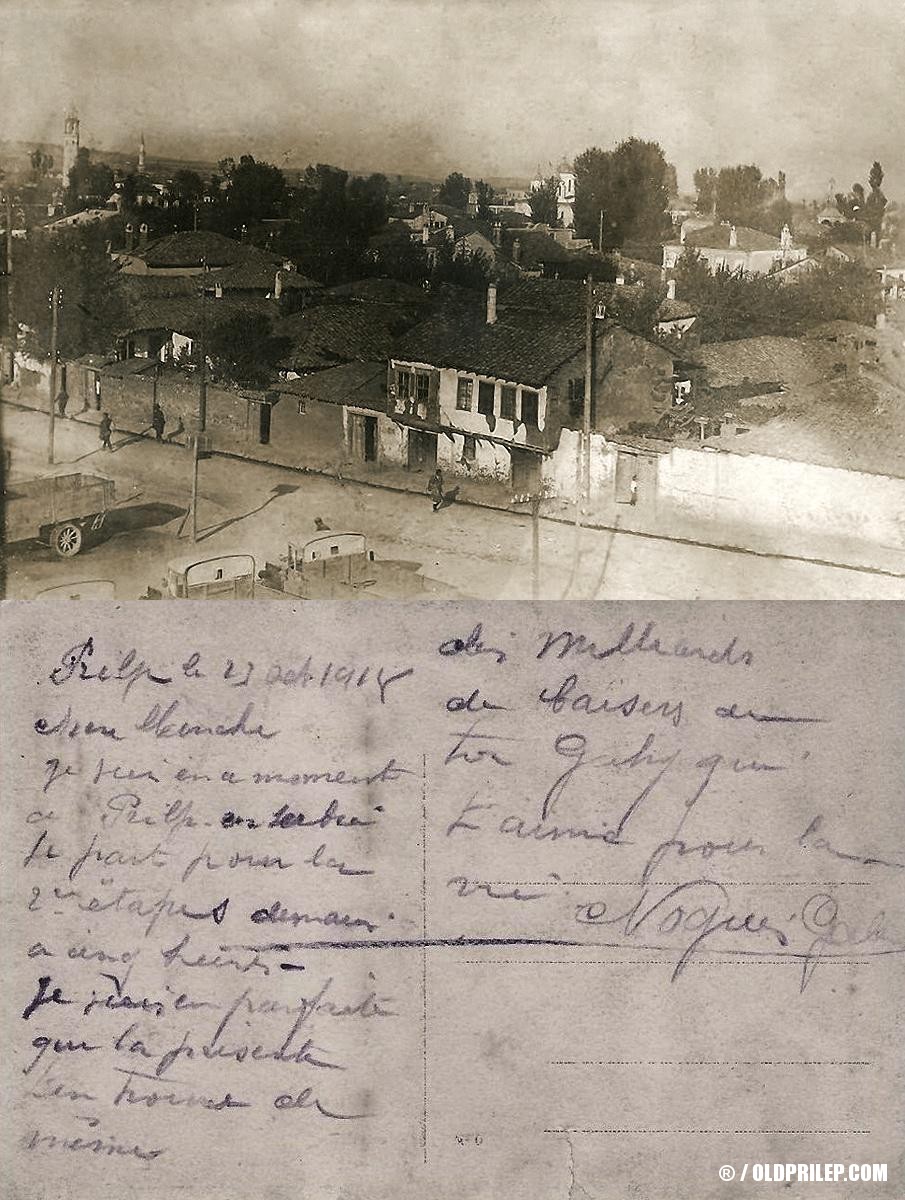 Prilp le 23 oct 1918
Mon
je suis en a moment
a Prilp en serbie
Je part pour la
2me étapes demain
a cinq heures -
Je suis en parfaite
que la présente
t'en trouve de
même
des Milliards
de baisers de
ton Gaby qui
t'aime pour la
vie.
Nogues Gab
® / OLDPRILEP.COM